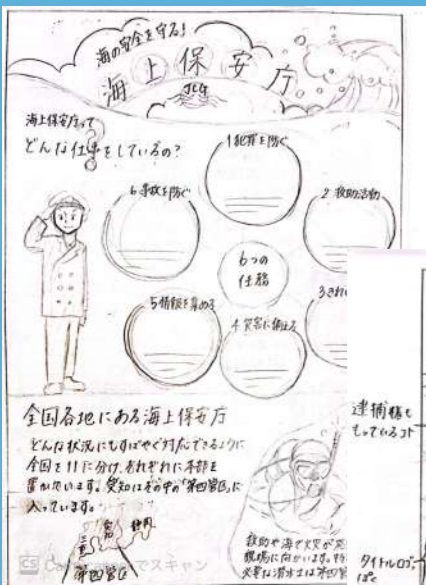 海の安全を守る!
海上保安庁
JCG
海上保安庁って
どんな仕事をしているの?
1 犯罪を防ぐ
2 救助活動
3 きれ
4 災害に備える
5 情報を集める
6 事故を防ぐ
6つの
任務
全国各地にある海上保安庁
どんな状況にもすばやく対応できるように
全国を11に分け、それぞれに本部を
置かれています。愛知はその中の「第四管区」に
入っています。
三重
愛知
静岡
第四管区
救助や海で火災が
現場に向かいます。特
潜水士は第四管
逮捕権も
もっているコト
タイトルロゴ
CS
でスキャン